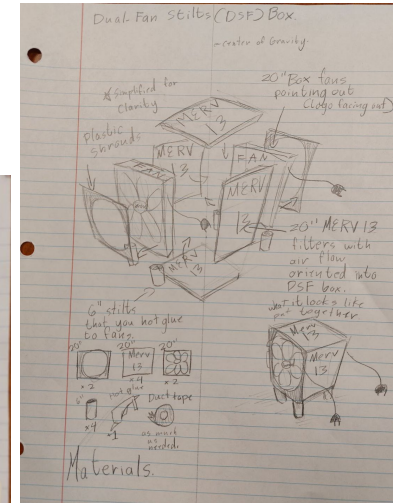 Dual Fan Stilts (DSF) Box.
= center of Gravity.
* Simplified for
Clarity
20" Box fans
pointing out
(logo facing out)
Plastic
shrouds
MERV
13
MERV
13
FAN
FAN
MERV
13
MERV
13
20" MERV 13
filters with
air flow
oriented into
DSF box.
6" stilts
that you hot glue
to fans.
what it looks like
put together
MERV
13
MERV
13
20"
x2
20"
Merv
13
x4
20"
x2
6"
x4
hot glue
x1
Duct tape
as much
as
needed.
Materials.